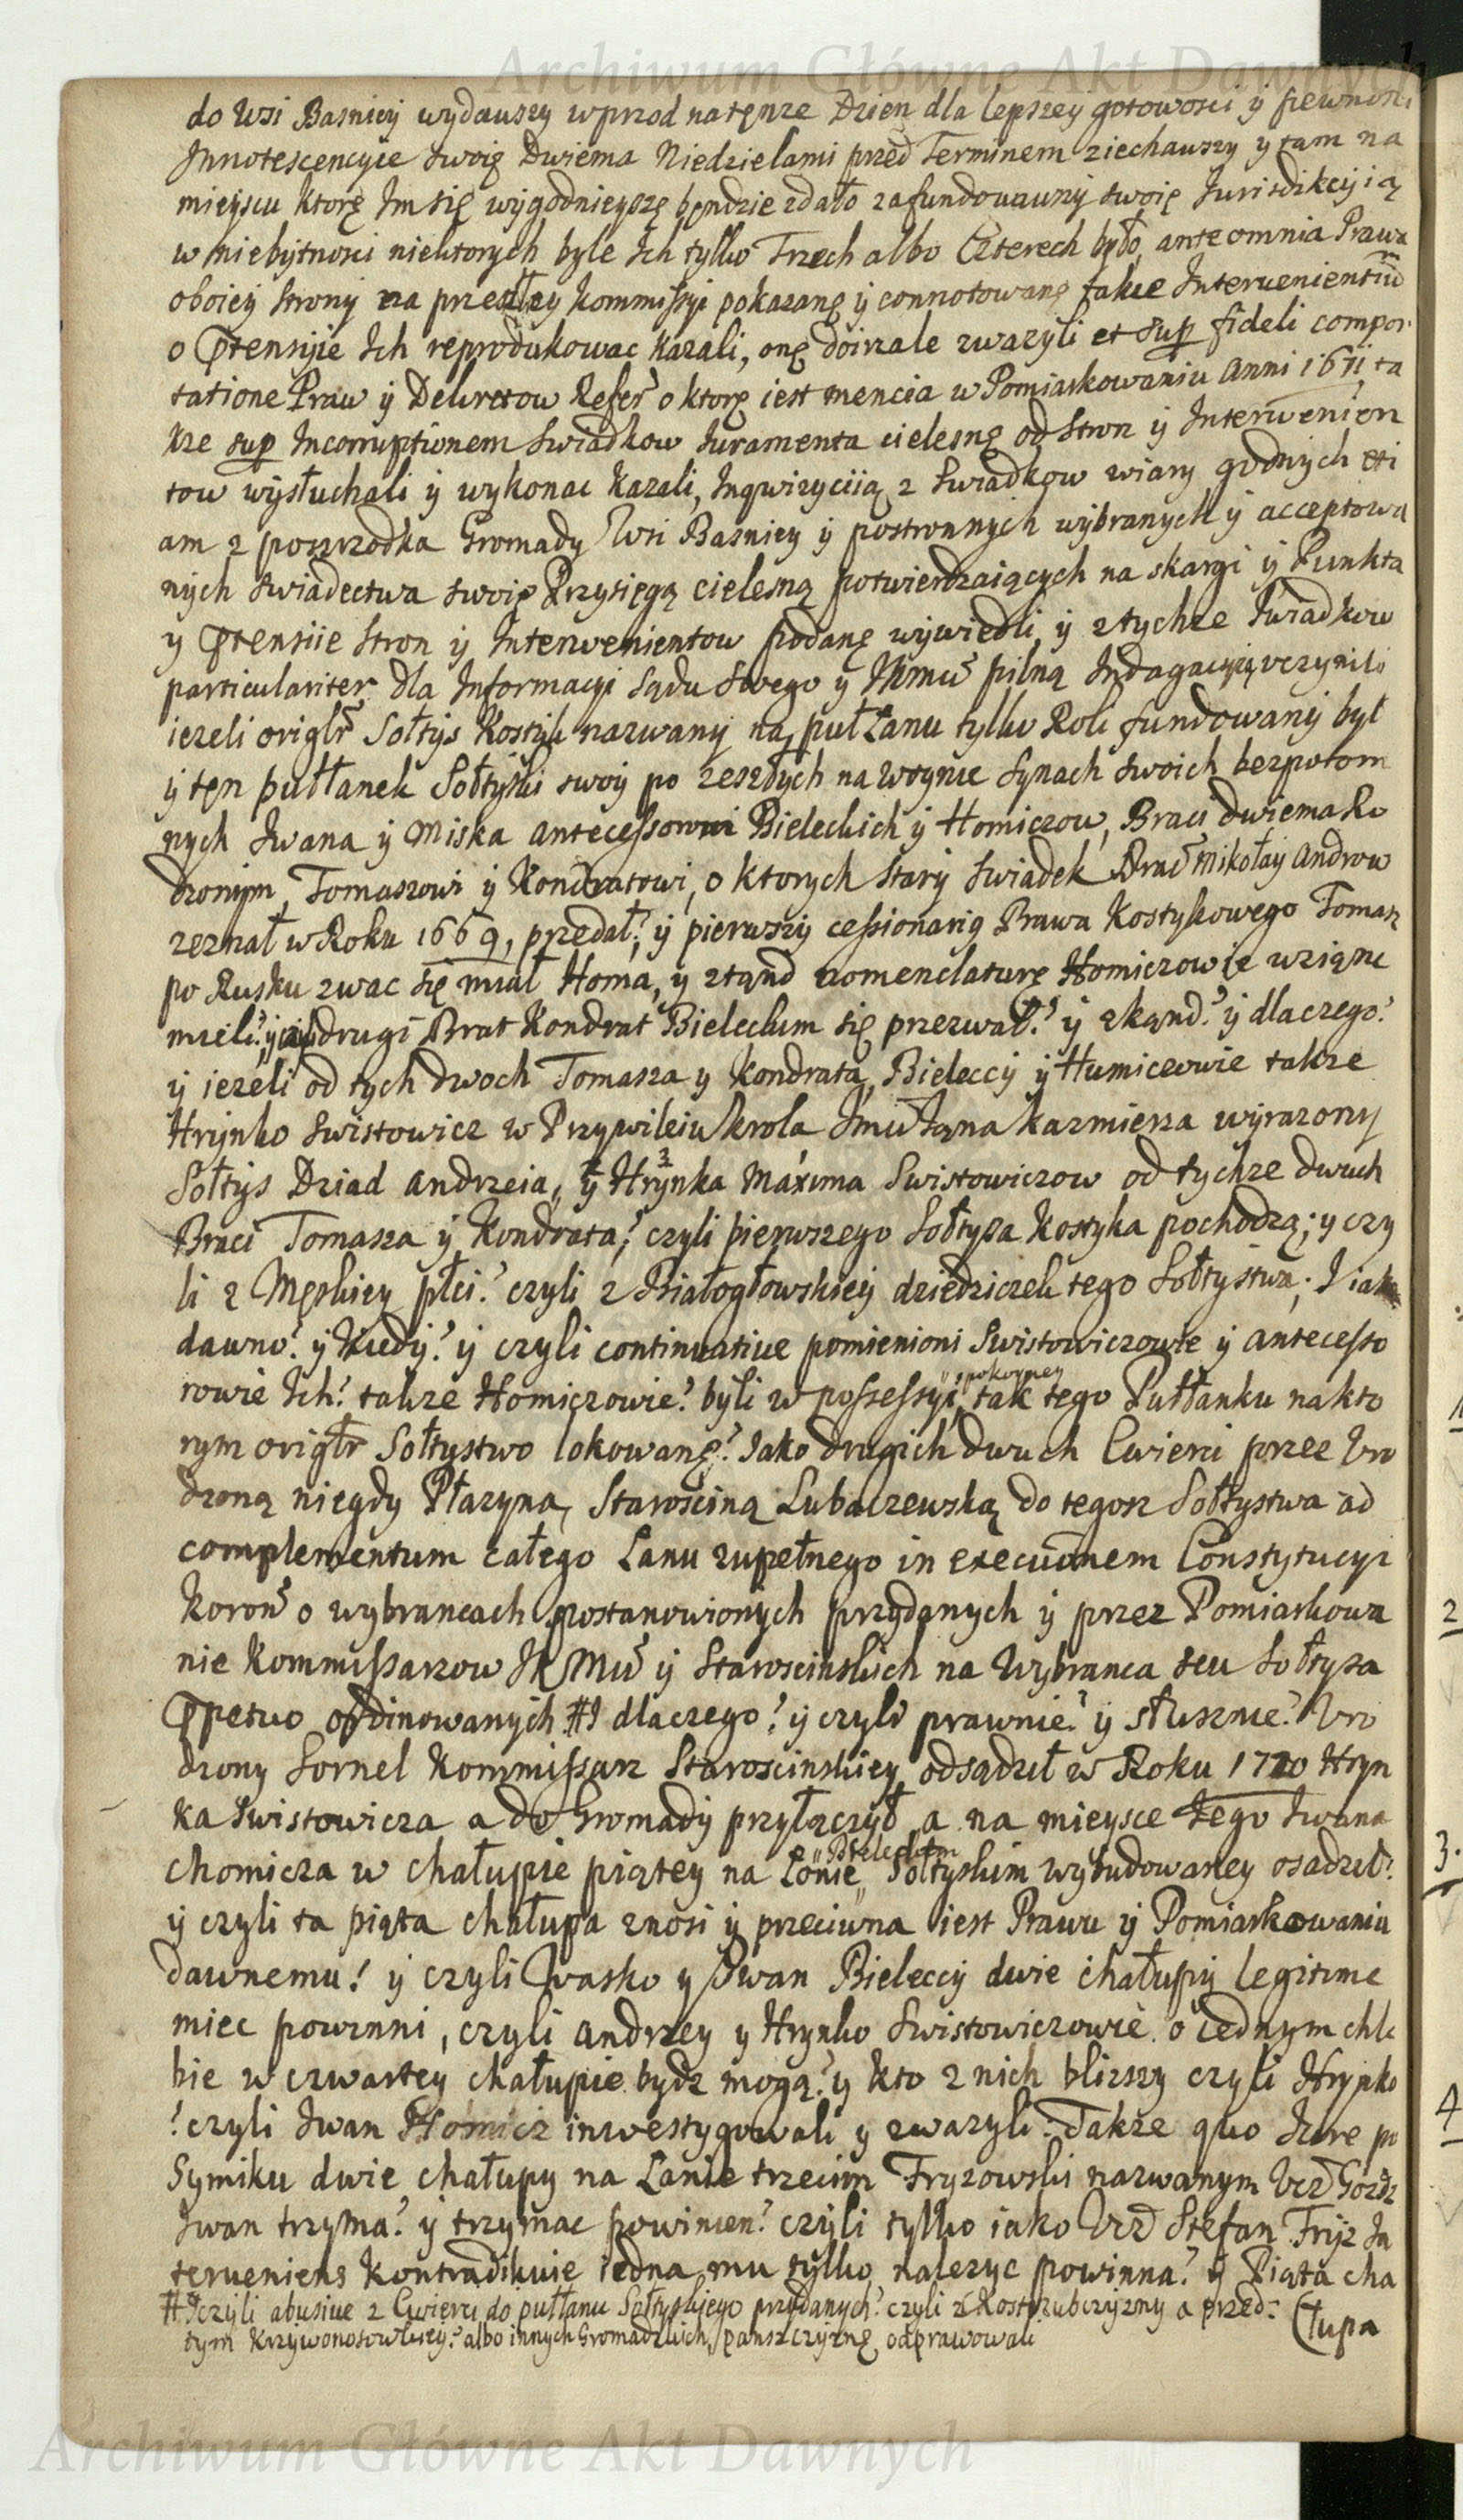 Archiwum Główne Akt Dawnych
do Wsi Basniey wydawszy wprzod natęnze Dzien dla lepszey gotowosci ÿ pewnosci
Jnnotescencyie swoię Dwiema Niedzielami przed Terminem ziechawszy y tam na
mieyscu ktorę Jm się wÿgodnieyszę będzie zdało zafundowawszÿ swoię Jurisdikcyią
w niebÿtnosci niektorych byle Jch tylko Trzech albo Czterech było, ante omnia Prawa
oboieÿ stronÿ na przeszłey kommissÿi pokazanę ÿ connotowanę także Interuenientiũ
o Prtensÿie Jch reprodukowac kazali, onę doirzale zwazÿli et sup fideli compor
tatione Praw ÿ Dekretow Refer o ktorę iest mencia w Pomiarkowaniu Anni 1671 ta
kze sup Incorruptionem swiadkow Juramenta cielesnę od stron ÿ Interwenien
tow wÿsłuchali ÿ wykonac kazali, Inqwizyciią z swiadkow wiary godnÿch eti
am z poszrzodka Gromady Wsi Basniey ÿ postronnÿch wÿbranych ÿ acceptowa
nÿch swiadectwa swoię Przysięgą cielesną potwierdzaiącÿch na skargi ÿ Punkta
y Prtensiie stron ÿ Interwenientow podanę wÿwiedli, ÿ ztÿchze swiadkow
particulariter dla Informacÿi sądu swego y JKmũ pilną Indagacÿią vczynili
iezeli origlr Sołtÿs Kostÿk nazwanÿ na puł Łanu tylko Roli fundowanÿ był
ÿ tęn pułłanek Sołtÿski swoÿ po zeszłÿch na woynie synach swoich bezpotom
nych Iwana ÿ Miska antecessorowi Bieleckich ÿ Homiczow, Braci dwiema Ro
dzonÿm, Tomaszowi ÿ Kondratowi, o ktorych starÿ swiadek Prac Mikołaÿ Androw
zeznał w Roku 1669, przedał? ÿ pierwszÿ cessionarię Prawa Kostykowego Tomasz
po Rusku zwac się miał Homa, y ztąnd nomenclaturę Homiczowie wziąnc
mieli? ÿ drugi Brat Kondrat Bieleckim się przezwał? ÿ zkąnd? ÿ dlaczego?
ÿ iezeli od tych dwoch Tomasza y Kondrata, Bieleccÿ ÿ Humiczowie takze
Hrÿnko Swistowicz w Przywileiu krola Jmũ Jana Kazmierza wÿrazonÿ
Sołtÿs Dziad Andrzeia, ÿ Hrÿnka Maxima Swistowiczow od tychze dwuch
Braci Tomasza ÿ Kondrata? czyli pierwszego Sołtysa Kostyka pochodzą; y czy
li z Męskiey płci? czyli z Białogłowskieÿ dziedziczek tego Sołtystwa; J iak
dawno? ÿ kiedÿ? ÿ czyli continuative pomienioni Swistowiczowie ÿ antecesso
rowie Jch? takze Homiczowie? bÿli w possessÿi, spokoyney tak tego Pułłanku na kto
rym origlr Sołtystwo lokowanę? Jako drugich dwuch Cwierci przez Vro
dzoną niegdy Płazyna, Starosciną Lubaczewską do tegosz Sołtystwa ad
complementum całego Łanu zupełnego in executionem Constytucÿi
koron o wybrancach postanowionÿch przÿdanÿch ÿ przez Pomiarkowa
nie Kommissarzow JKMũ ÿ Staroscinskich na Wybranca seu Sołtysa
Prpetuo ordinowanÿch # J dlaczego? ÿ czyli prawnie? ÿ słusznie? Vro
dzony Sornel Kommissarz Staroscinskiey odsądził w Roku 1720 Hryn
ka Swistowicza a do Gromadÿ przyłączył, a na mieysce tego Iwana
Chomicza w chałupie piątey na Łonie Bieleckim Sołtyskim wybudowaney osadził?
ÿ czyli ta piąta chałupa znosi ÿ przeciwna iest Prawu ÿ Pomiarkowaniu
dawnemu? ÿ czyli Wasko y Jwan Bieleccÿ dwie chałupÿ legitime
miec powinni, czyli Andrzey y Hrynko Swistowiczowie o iednym chle
bie w czwartey chałupie bydz mogą? y kto z nich blizszy czyli Hrynko
? czyli Iwan Homicz inwestygowali y zwazyli. Takze quo Jure po
Symiku dwie chałupy na Łanie trzecim Fryzowski nazwanym Vcz Gozdz
Iwan trzyma? ÿ trzymac powinien? czyli tylko iako Vcz Stefan Frÿz In
terueniens kontradikuie iedna mu tylko nalezyc powinna? ÿ Piąta cha
# Jczyli abusiue z Cwierci do pułłanu Sołtyskiego przÿdanÿch? czyli z Kostrzubczyzny a przed-
tym Krzÿwonosowskieÿ? albo innÿch Gromadzkich, panszczyznę odprawowali
(łupa
2
3.
4
Archiwum Główne Akt Dawnych